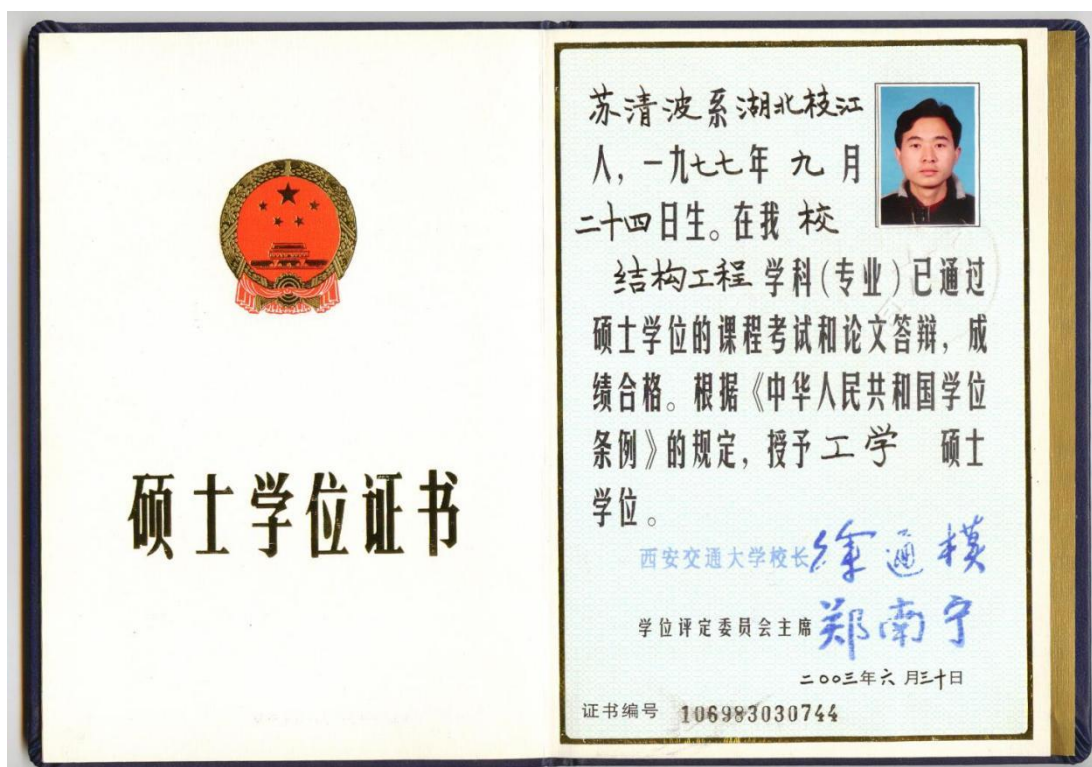 硕士学位证书
苏清波系湖北枝江
人，一九七七年 九 月
二十四日生。在我 校
结构工程 学科（专业）已通过
硕士学位的课程考试和论文答辩，成
绩合格。根据《中华人民共和国学位
条例》的规定，授予 工学 硕士
学位。
西安交通大学校长 徐通模
学位评定委员会主席 郑南宁
二〇〇三年六月三十日
证书编号 106983030744